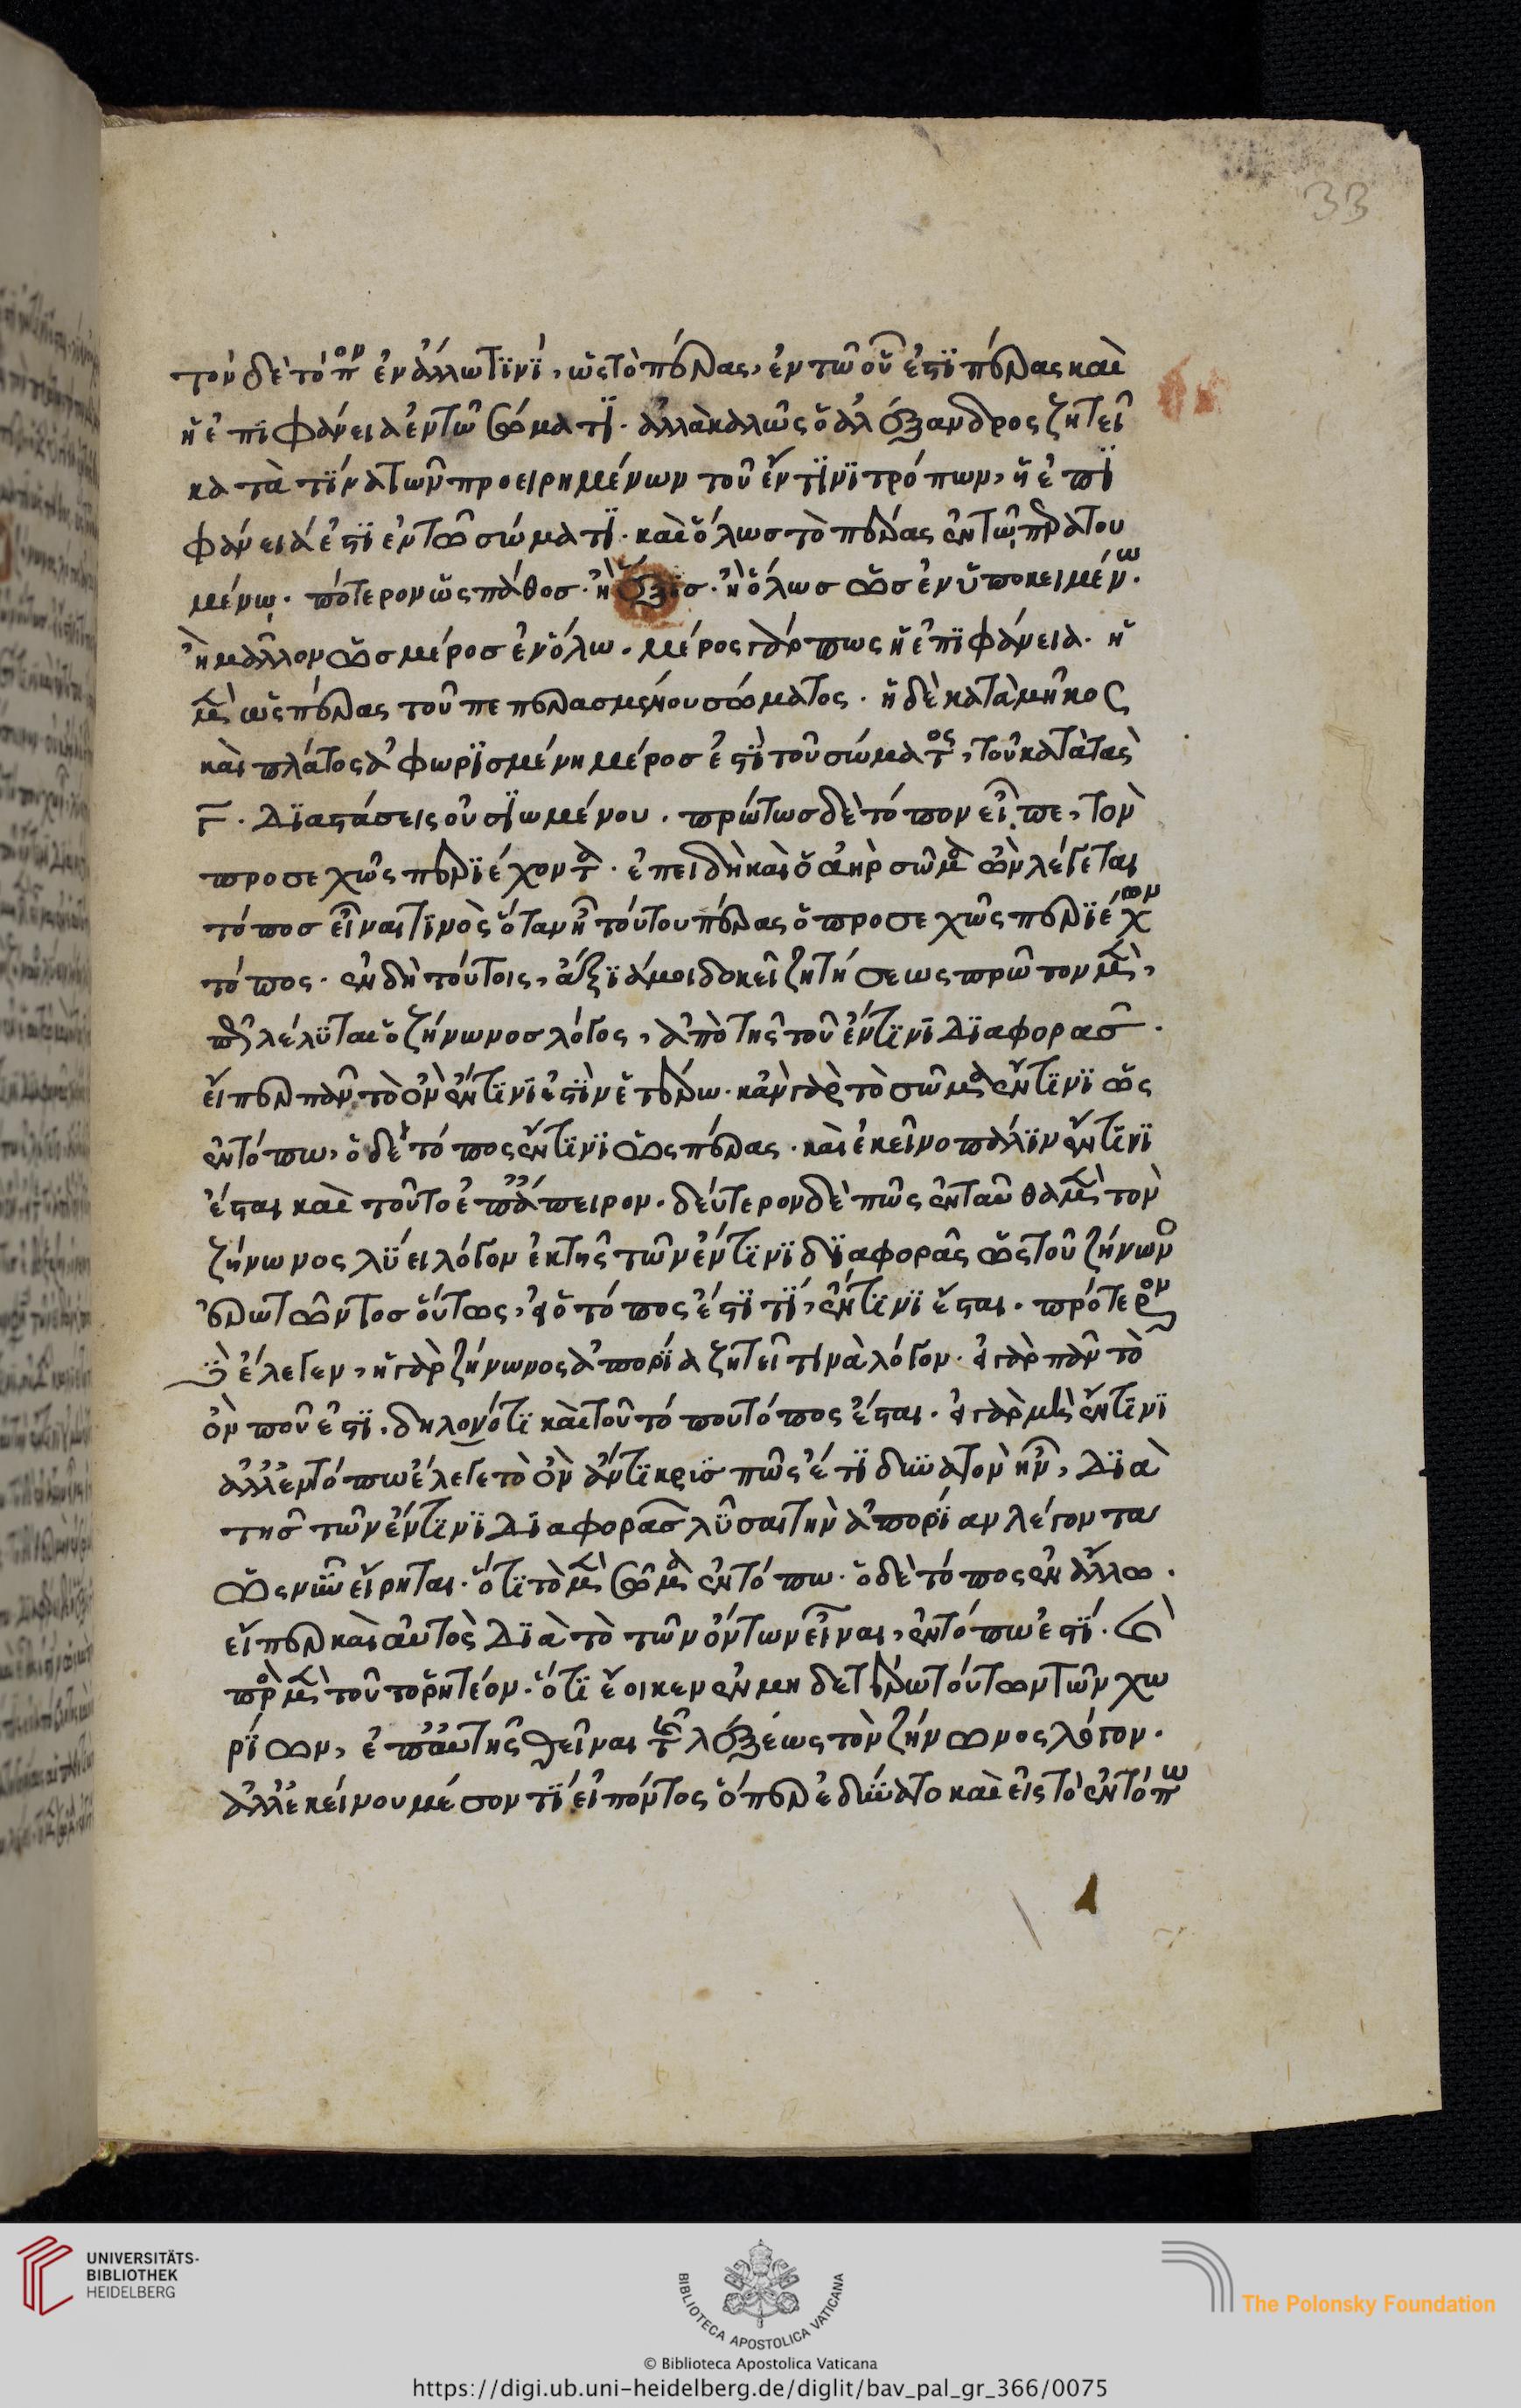 33
τὸν δὲ τόπον ἐν ἄλλω τινὶ, ὡς τὸ πέρας, ἐν τῶ οὗ ἐστι πέρας καὶ
ἡ ἐπιφάνεια ἐν τῶ σώματι. ἀλλὰ καλῶς ὁ ἀλέξανδρος ζητεῖ
κατὰ τίνα τῶν προειρημένων τοῦ ἔν τινι τρόπων, ἡ ἐπι
φάνειά ἐστι ἐν τῶ σώματι. καὶ ὅλως τὸ πέρας ἐν τῷ περατου
μένῳ. πότερον ὡς πάθος. ἢ ἕξις. ἢ ὅλως ὡς ἐν ὑποκειμένω.
ἢ μᾶλλον ὡς μέρος ἐν ὅλω. μέρος γάρ πως ἡ ἐπιφάνεια. ἡ
μὲν ὡς πέρας τοῦ πεπερασμένου σώματος. ἡ δὲ κατὰ μῆκος
καὶ πλάτος ἀφωρισμένη μέρος ἐστὶ τοῦ σώματος, τοῦ κατὰ τὰς
γ. διαστάσεις οὐσιωμένου. πρώτως δὲ τόπον εἶπε, τὸν
προσεχῶς περιέχοντα. ἐπειδὴ καὶ ὁ ἀὴρ σῶμα ὢν λέγεται
τόπος εἶναι τινὸς ὅταν ἦ τούτου πέρας ὁ προσεχῶς περιέχων
τόπος. ἐν δὴ τούτοις, ἄξιά μοι δοκεῖ ζητήσεως πρῶτον μὲν,
πῆ λέλυται ὁ ζήνωνος λόγος, ἀπὸ τῆς τοῦ ἔν τινι διαφορᾶς.
εἴπερ πᾶν τὸ ὂν ἔν τινί ἐστὶν ἑτέρω. κἂν γὰρ τὸ σῶμα ἔν τινι ὡς
ἐν τόπω, ὁ δὲ τόπος ἔν τινι ὡς πέρας. καὶ ἐκεῖνο πάλιν ἔν τινι
ἔσται καὶ τοῦτο ἐπ' ἄπειρον. δεύτερον δὲ πῶς ἐνταῦθα μὲν τὸν
ζήνωνος λύει λόγον ἐκ τῆς τῶν ἔν τινι διαφορᾶς ὡς τοῦ ζήνωνο
ἐρωτῶντος οὕτως, εἰ ὁ τόπος ἐστί τι, ἔν τινι ἔσται. πρότερον
δὲ ἔλεγεν, ἡ γὰρ ζήνωνος ἀπορία ζητεῖ τινὰ λόγον. εἰ γὰρ πᾶν τὸ
ὂν ποῦ ἐστι. δηλονότι καὶ τοῦ τόπου τόπος ἔσται. εἰ γὰρ μὴ ἔν τινι
ἀλλ' ἐν τόπω ἔλεγε τὸ ὂν ἄντικρυς πῶς ἔτι δυνατὸν ἦν, διὰ
τῆς τῶν ἔν τινι διαφορᾶς λῦσαι τὴν ἀπορίαν λέγοντα
ὡς νῦν εἴρηται. ὅτι τὸ μὲν σῶμα ἐν τόπω. ὁ δὲ τόπος ἐν ἄλλω.
εἴπερ καὶ αὐτὸς διὰ τὸ τῶν ὄντων εἶναι, ἐν τόπω ἐστί. καὶ
πρὸς μὲν τοῦτο ῥητέον. ὅτι ἔοικεν ἐν μηδετέρω τούτων τῶν χω
ρίων, ἐπ' αὐτῆς θεῖναι τῆς λέξεως τὸν ζήνωνος λόγον.
ἀλλ' ἐκείνου μέσον τι εἰπόντος ὅπερ ἐδύνατο καὶ εἰς τὸ ἐν τόπω
UNIVERSITÄTS-
BIBLIOTHEK
HEIDELBERG
BIBLIOTECA APOSTOLICA VATICANA
The Polonsky Foundation
© Biblioteca Apostolica Vaticana
https://digi.ub.uni-heidelberg.de/diglit/bav_pal_gr_366/0075